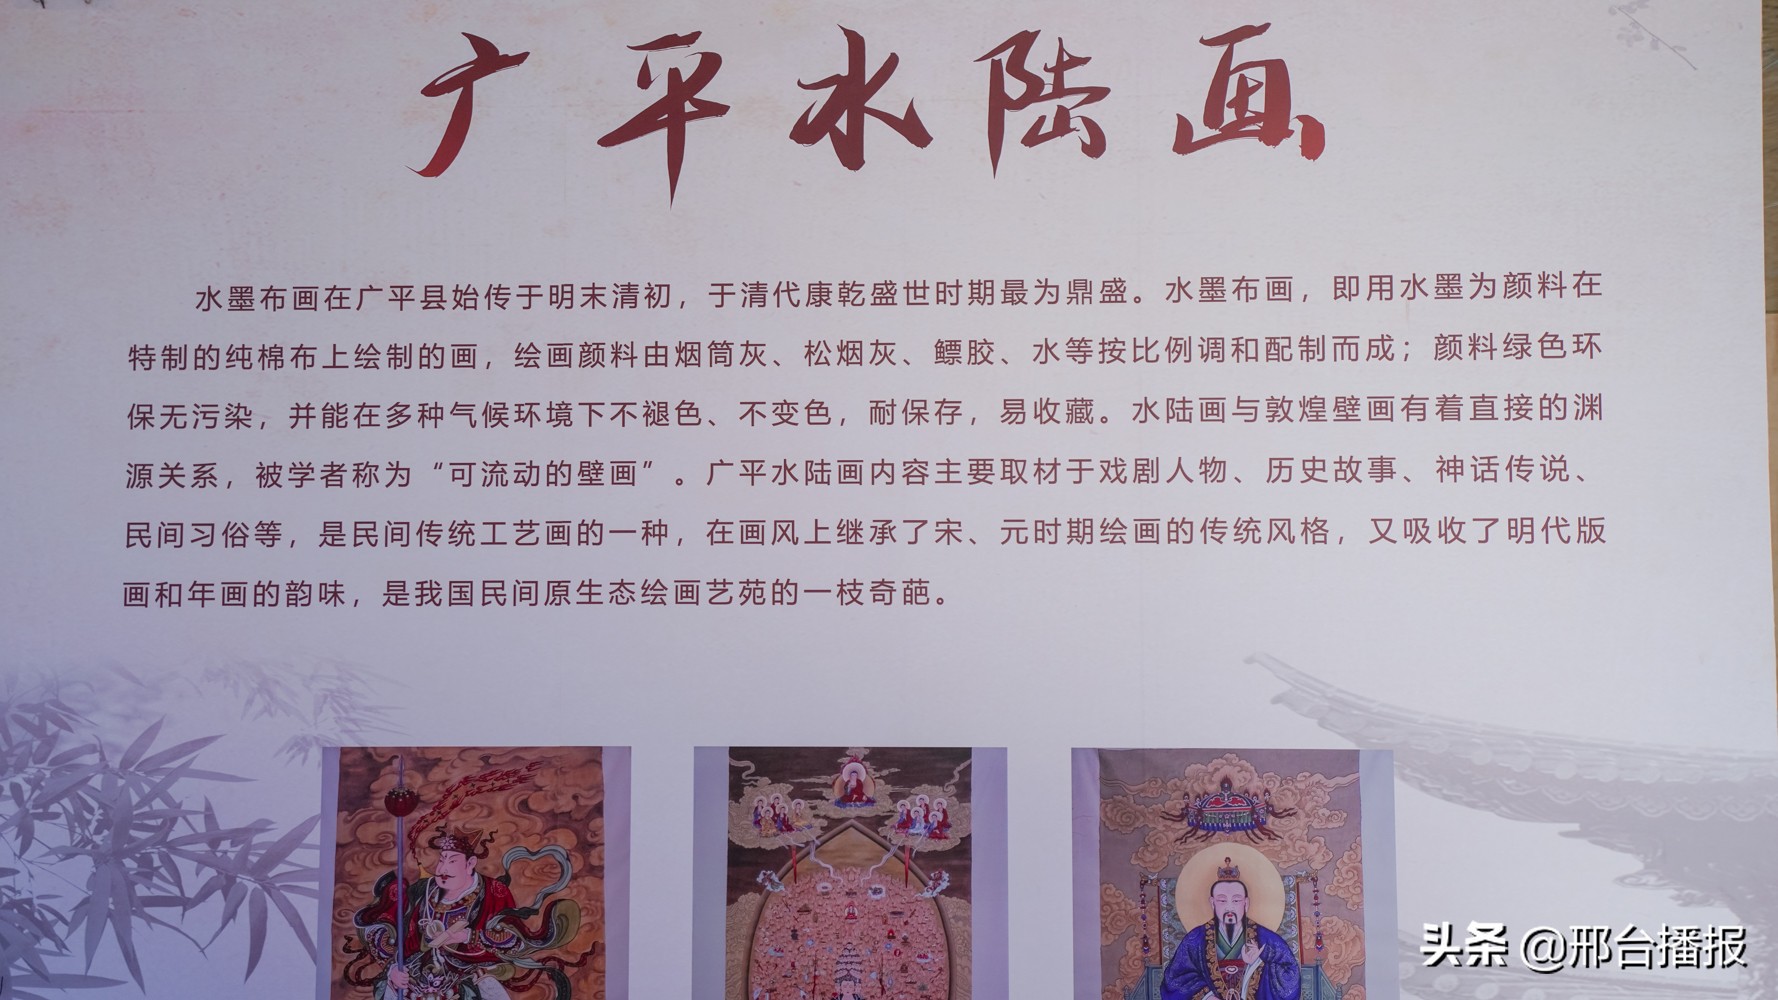 广平水陆画
水墨布画在广平县始传于明末清初，于清代康乾盛世时期最为鼎盛。水墨布画，即用水墨为颜料在
特制的纯棉布上绘制的画，绘画颜料由烟筒灰、松烟灰、鳔胶、水等按比例调和配制而成；颜料绿色环
保无污染，并能在多种气候环境下不褪色、不变色，耐保存，易收藏。水陆画与敦煌壁画有着直接的渊
源关系，被学者称为“可流动的壁画”。广平水陆画内容主要取材于戏剧人物、历史故事、神话传说、
民间习俗等，是民间传统工艺画的一种，在画风上继承了宋、元时期绘画的传统风格，又吸收了明代版
画和年画的韵味，是我国民间原生态绘画艺苑的一枝奇葩。
头条 @邢台播报